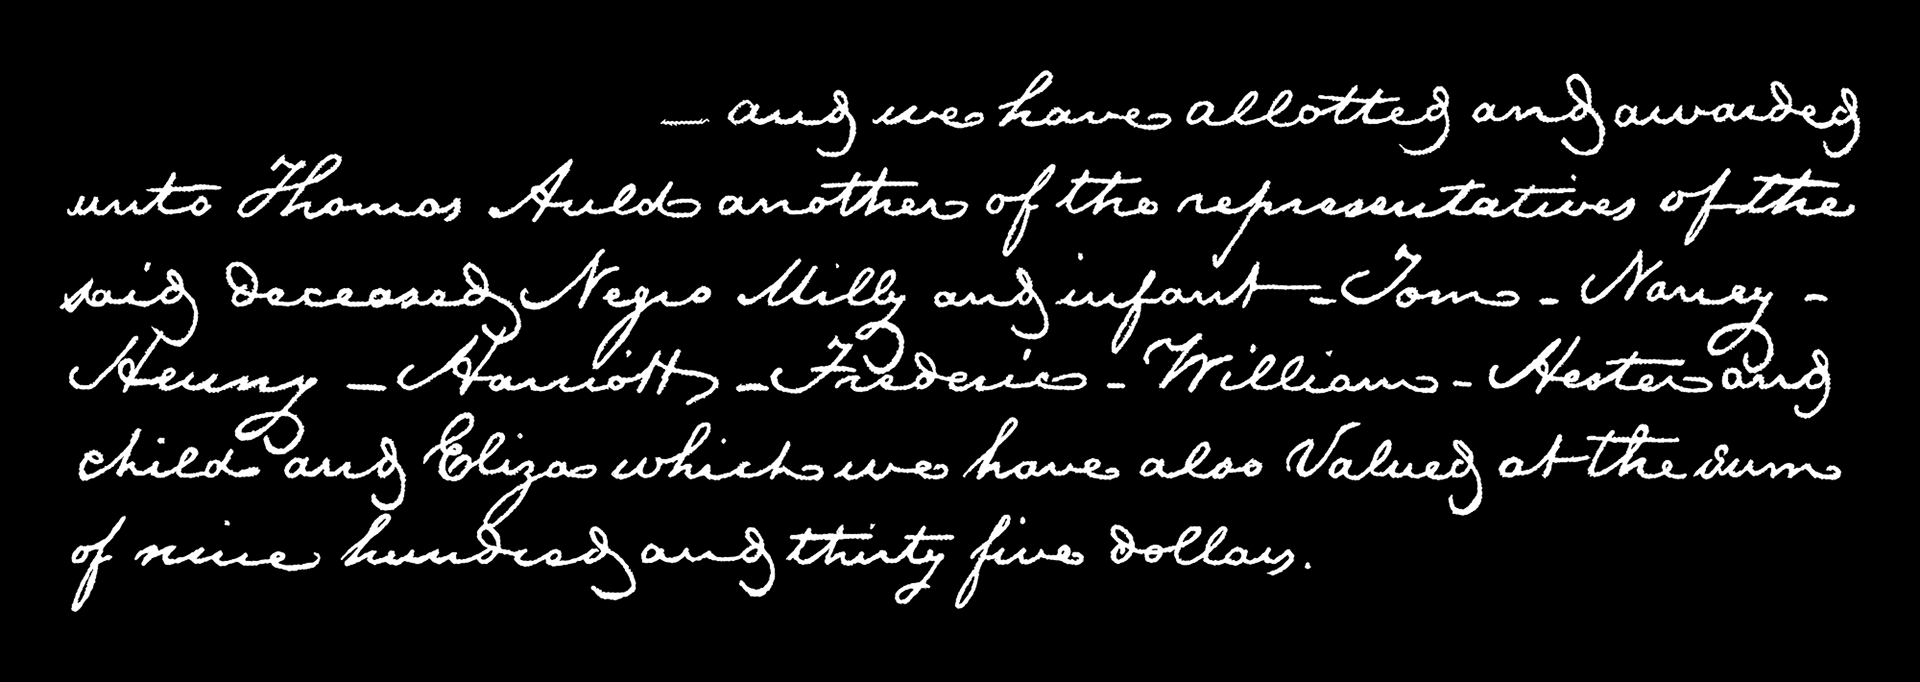 — and we have allotted and awarded
unto Thomas Auld another of the representatives of the
said deceased Negro Milly and infant - Tom - Nancy -
Henny - Harriott - Frederic - William - Hester and
child and Eliza which we have also Valued at the sum
of nine hundred and thirty five dollars.